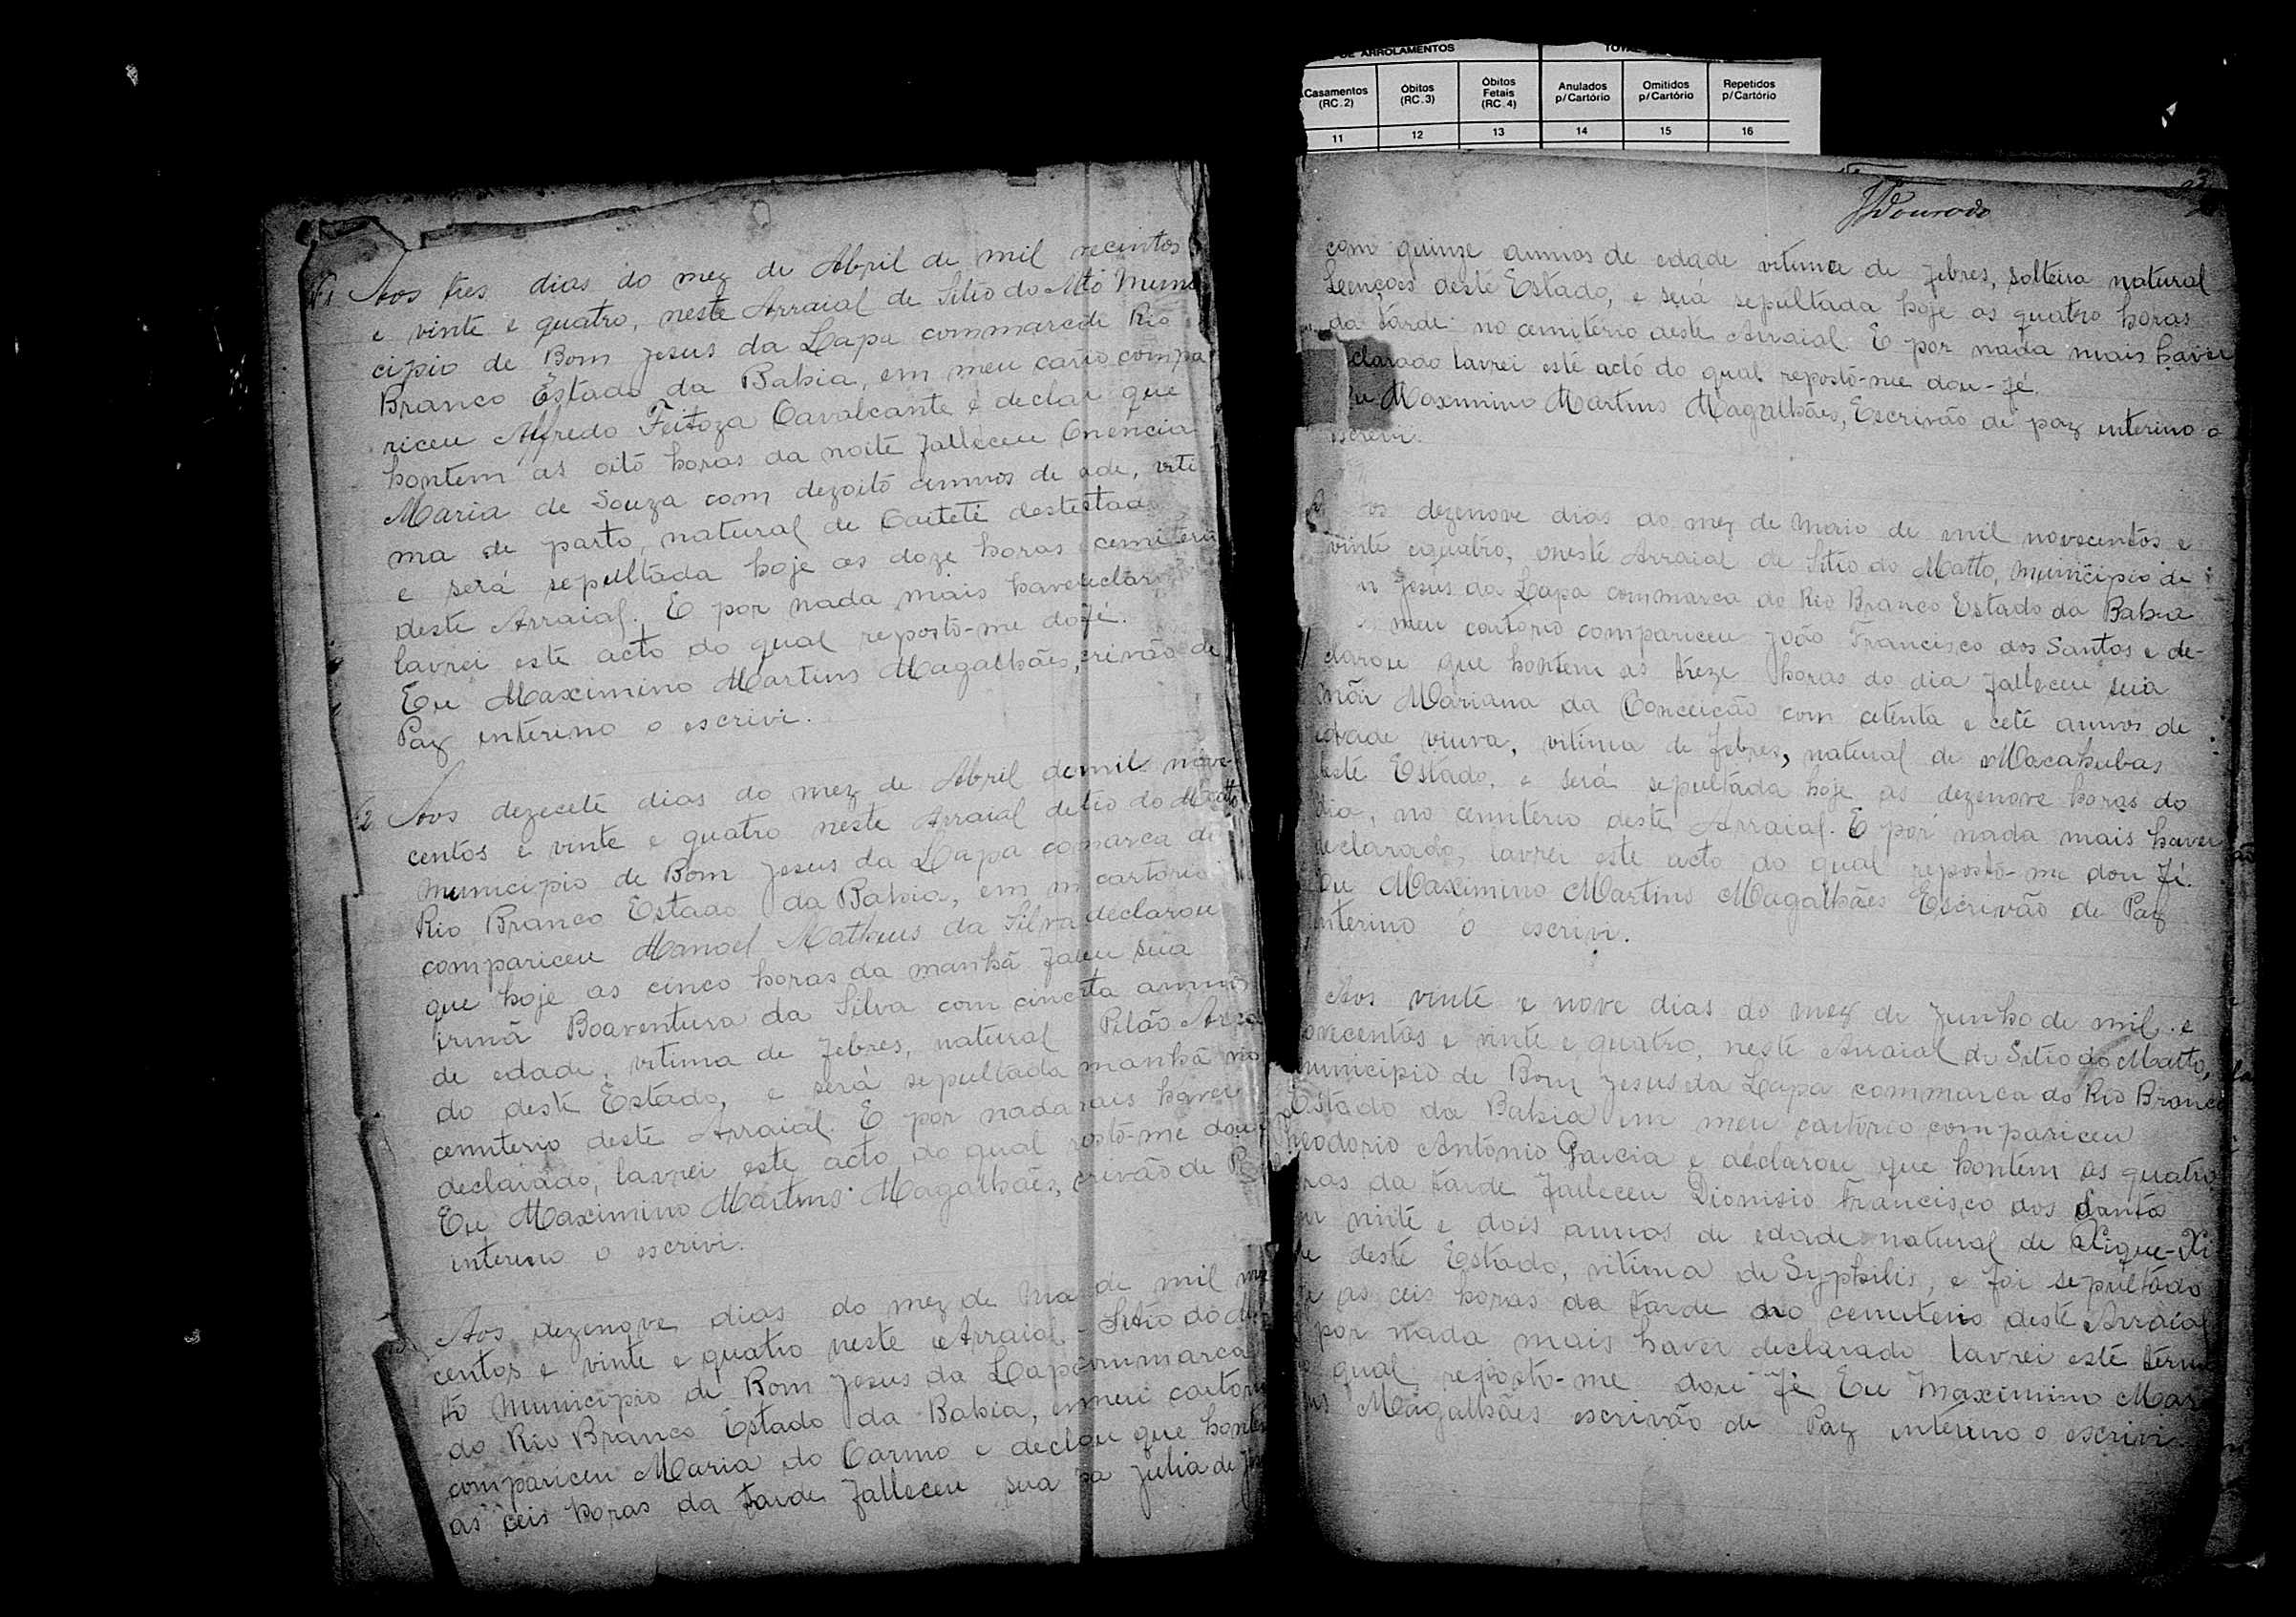 DE ARROLAMENTOS
Casamentos (RC.2) Óbitos (RC.3) Óbitos Fetais (RC.4) Anulados p/Cartório Omitidos p/Cartório Repetidos p/Cartório
11 12 13 14 15 16
Aos tres dias do mez de Abril de mil necintos
e vinte e quatro, neste Arraial de Sitio do Mto Muni
cipio de Bom Jesus da Lapa commarcde Rio
Branco Estado da Bahia, em meu cario compa
riceu Alfredo Feitoza Cavalcante e declai que
hontem as oito horas da noite falleceu Onencia
Maria de Souza com dezoito annos de ade, viti
ma de parto, natural de Caiteté destestad
e será sepultada hoje as doze horas cemiterio
deste Arraial. E por nada mais haveeclar
lavrei este acto do qual reposto-me dofé.
Eu Maximino Martins Magalhães, crivão de
Paz interino o escrivi.
2 Aos dezecete dias do mez de Abril demil nove
centos e vinte e quatro neste Arraial detio do Matto
municipio de Bom Jesus da Lapa comarca de
Rio Branco Estado da Bahia, em m cartorio
compariceu Manoel Matheus da Silva declarou
que hoje as cinco horas da manhã faleu sua
irmã Boaventura da Silva com cinceta annos
de edade, vitima de febres, natural Pilão Arca
do deste Estado, e será sepultada manhã no
cemiterio deste Arraial. E por nada ais haver
declarado, lavrei este acto do qual rosto-me dou
Eu Maximino Martins Magalhães, crivão de P
interino o escrivi.
Aos dezenove dias do mez de Ma de mil
centos e vinte e quatro neste Arraial Sitio do
to Municipio de Bom Jesus da Lapcommarca
do Rio Branco Estado da Bahia, emeu cartori
compariceu Maria do Carmo e declou que honte
as ceis horas da tarde falleceu sua a Julia de
JDourado
com quinze annos de edade vitima de febres, solteira natural
Leençoes deste Estado, e será sepultada hoje as quatro horas
da tarde no cemitério deste Arraial. E por nada mais haver
clarado lavrei este actó do qual reposto-me dou-fé.
u Maximino Martins Magalhães, Escrivão de paz interino o
escrevi.
os dezenove dias do mez de Maio de mil novecentos e
vinte equatro, neste Arraial de Sitio do Matto, municipio de
m Jesus da Lapa commarca do Rio Branco Estado da Bahia
meu cartorio compariceu João Francisco dos Santos e de-
clarou que hontem as treze horas do dia falleceu sua
mãi Mariana da Conceição com cetenta e cete annos de
edade viuva, vitima de febres, natural de Macahubas
deste Estado, e será sepultada hoje as dezenove horas do
dia, no cemiterio deste Arraial. E por nada mais haver
declarado, lavrei este acto do qual reposto-me dou fé.
Eu Maximino Martins Magalhães Escrivão de Paz
interino o escrivi.
Aos vinte e nove dias do mez de Junho de mil e
ovecentos e vinte e quatro, neste Arraial de Sitio do Matto,
municipio de Bom Jesus da Lapa commarca do Rio Branco
Estado da Bahia em meu cartorio compariceu
heodorio Antonio Garcia e declarou que hontem as quatro
ras da tarde falleceu Dionisio Francisco dos Santos
m vinte e dois annos de edade natural de Xique-Xi
ue deste Estado, vitima de Syphilis, e foi sepultado
as ceis horas da tarde no cemiterio deste Arraial
por nada mais haver declarado lavrei este termo
qual reposto-me dou fé Eu Maximino Mar
ns Magalhães escrivão de Paz interino o escrivi.